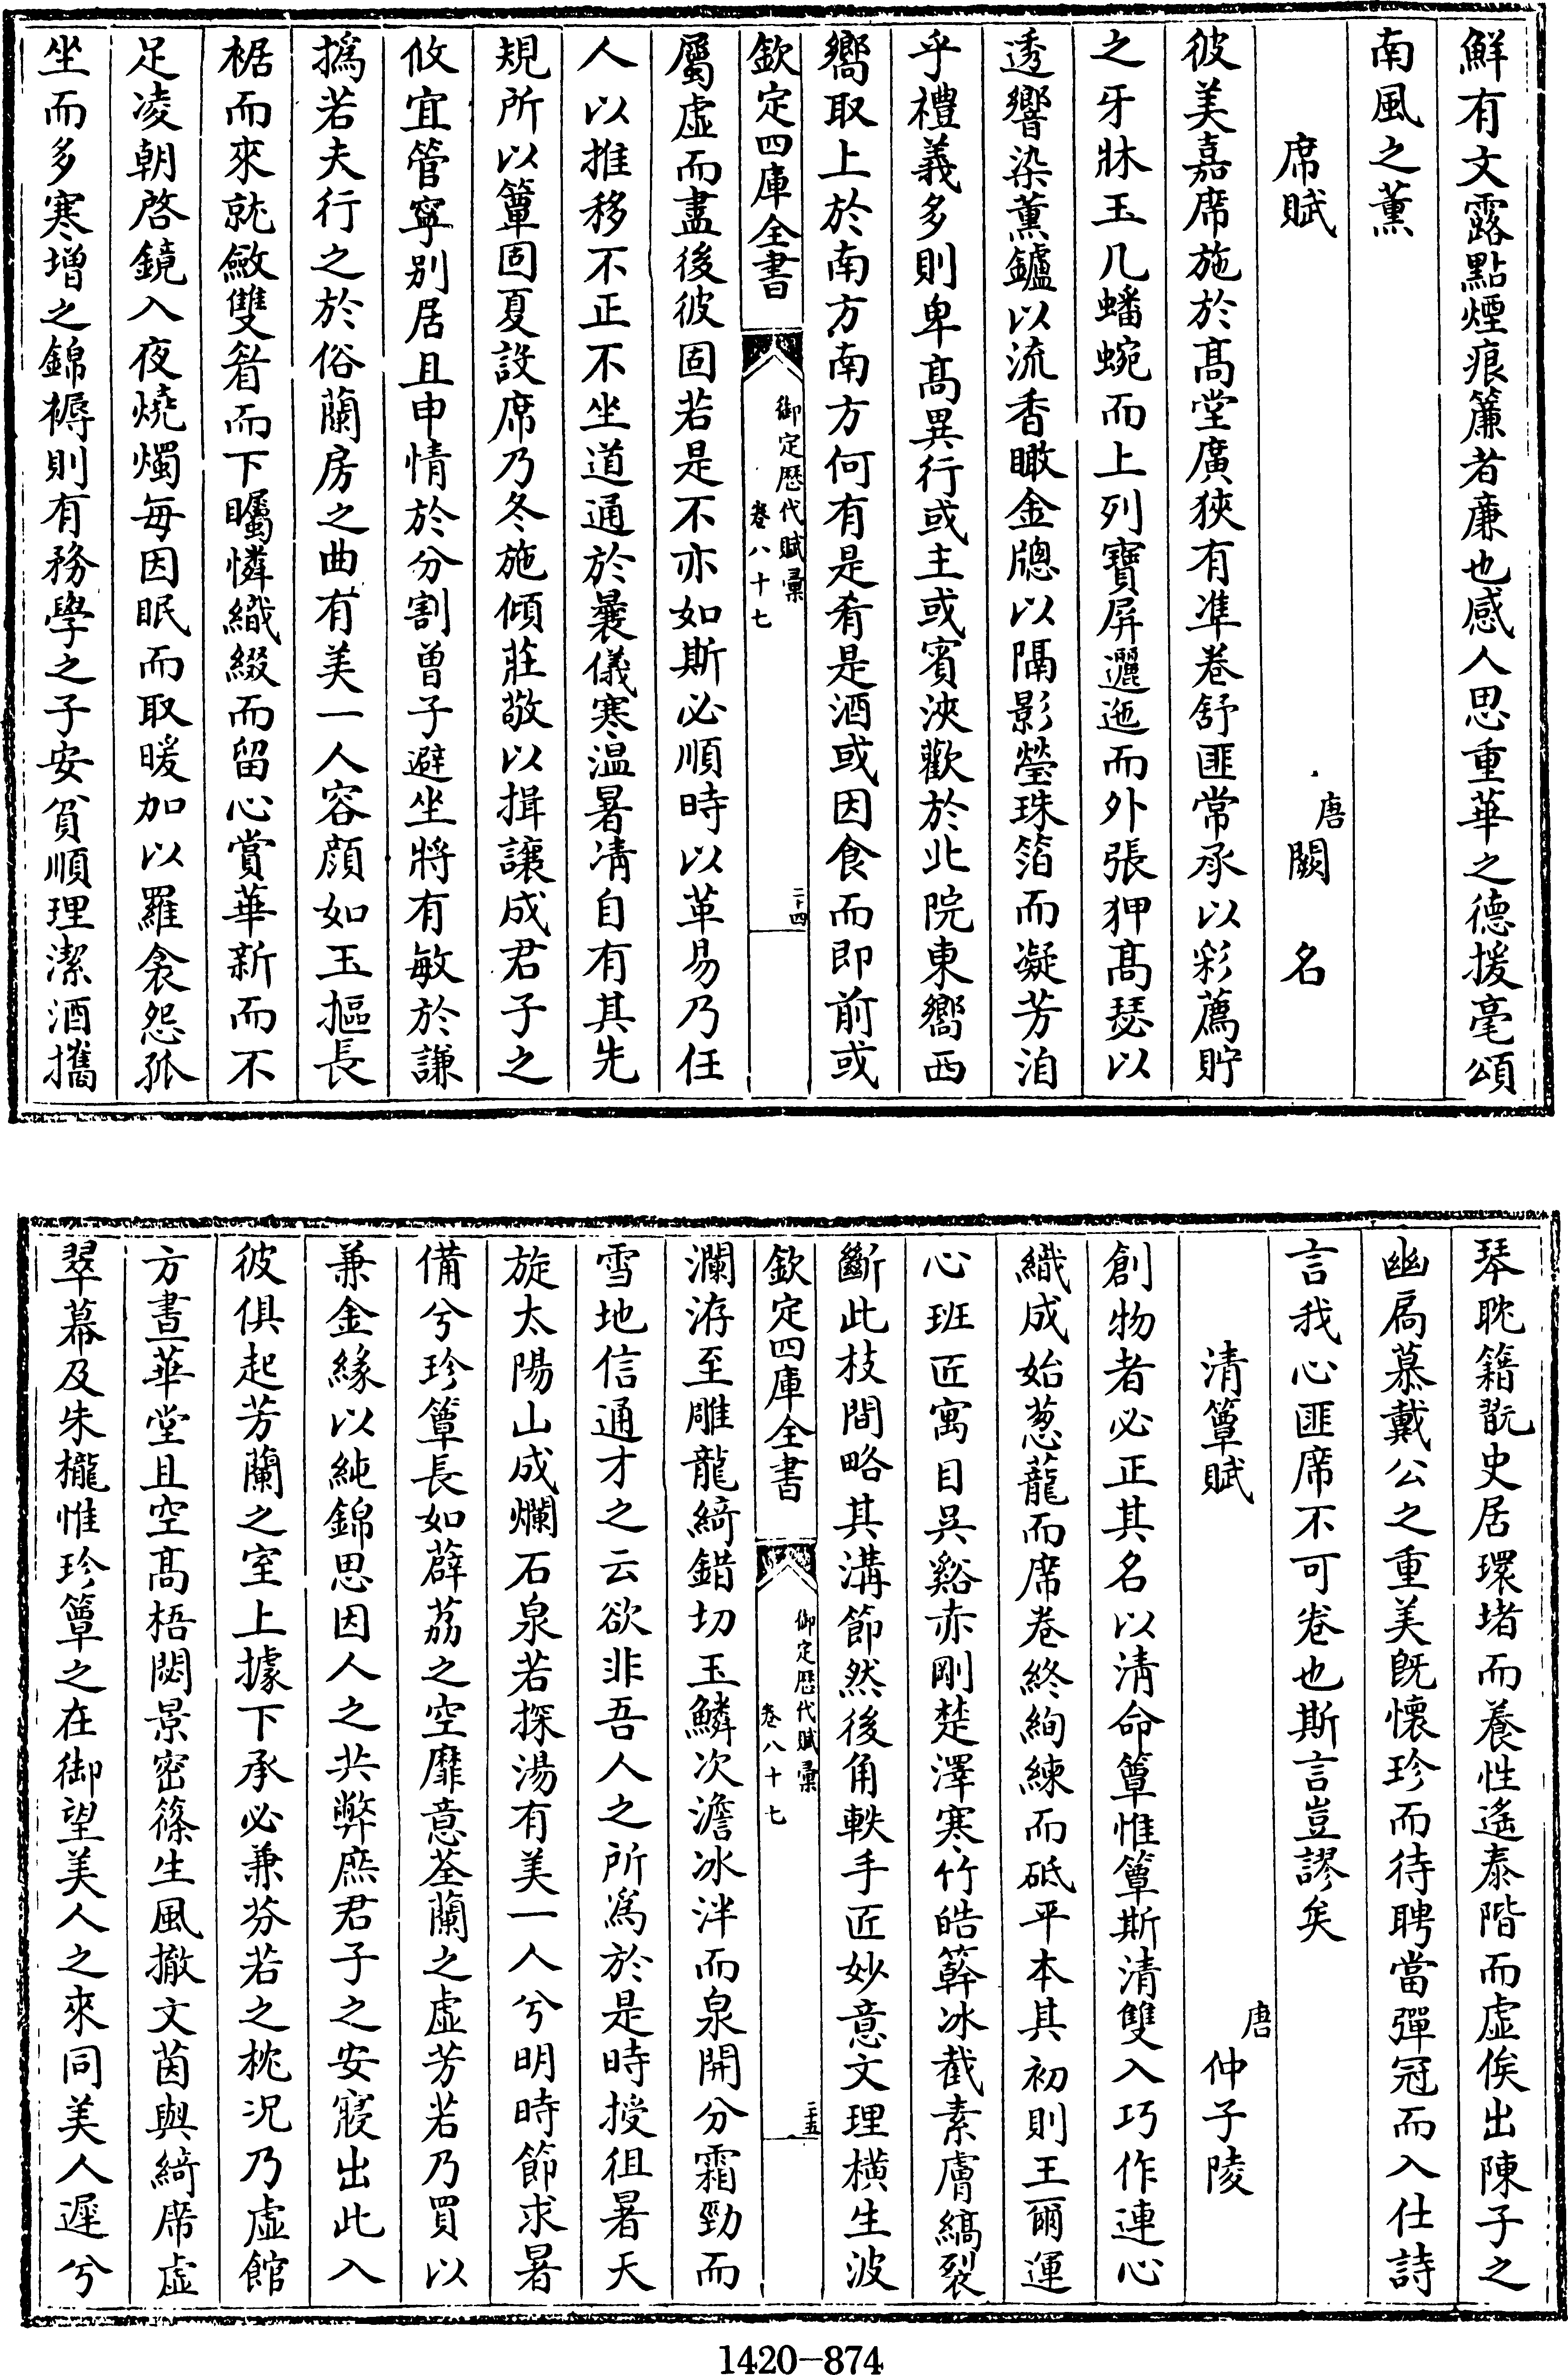 鮮有文露點煙痕簾者廉也感人思重華之德援毫頌
南風之薰
席賦
唐闕名
彼美嘉席施於高堂廣狹有準卷舒匪常承以彩薦貯
之牙牀玉几蟠蜿而上列寶屏邐迤而外張狎高瑟以
透響染薰鑪以流香瞰金牕以隔影瑩珠箔而凝芳洎
乎禮義多則卑高異行或主或賓浹歡於北院東嚮西
嚮取上於南方南方何有是肴是酒或因食而即前或
欽定四庫全書
御定歷代賦彙
卷八十七
二十四
屬虛而盡後彼固若是不亦如斯必順時以革易乃任
人以推移不正不坐道通於曩儀寒溫暑凊自有其先
規所以簟固夏設席乃冬施傾莊敬以揖讓成君子之
攸宜管寧别居且申情於分割曾子避坐將有敏於謙
撝若夫行之於俗蘭房之曲有美一人容顔如玉摳長
椐而來就斂雙眷而下矚憐織綴而留心賞華新而不
足凌朝啓鏡入夜燒燭每因眠而取暖加以羅衾怨孤
坐而多寒增之錦褥則有務學之子安貧順理潔酒攜
琴耽籍翫史居環堵而養性遙泰階而虛俟出陳子之
幽扃慕戴公之重美旣懷珍而待聘當彈冠而入仕詩
言我心匪席不可卷也斯言豈謬矣
清簟賦
唐仲子陵
創物者必正其名以清命簟惟簟斯清雙入巧作連心
織成始葱蘢而席卷終絢練而砥平本其初則王爾運
心班匠寓目吳谿赤剛楚澤寒竹皓簳冰截素膚縞裂
斷此枝間略其溝節然後角軼手匠妙意文理横生波
欽定四庫全書
御定歷代賦彙
卷八十七
二十五
瀾洊至雕龍綺錯切玉鱗次澹冰泮而泉開分霜勁而
雪地信通才之云欲非吾人之所爲於是時授徂暑天
旋太陽山成爛石泉若探湯有美一人兮明時節求暑
備兮珍簟長如薜荔之空靡意荃蘭之虛芳若乃買以
兼金緣以純錦思因人之共弊庶君子之安寢出此入
彼俱起芳蘭之室上據下承必兼芬若之枕況乃虛館
方晝華堂且空高梧閟景密篠生風撤文茵與綺席虛
翠幕及朱櫳惟珍簟之在御望美人之來同美人遲兮
1420-874